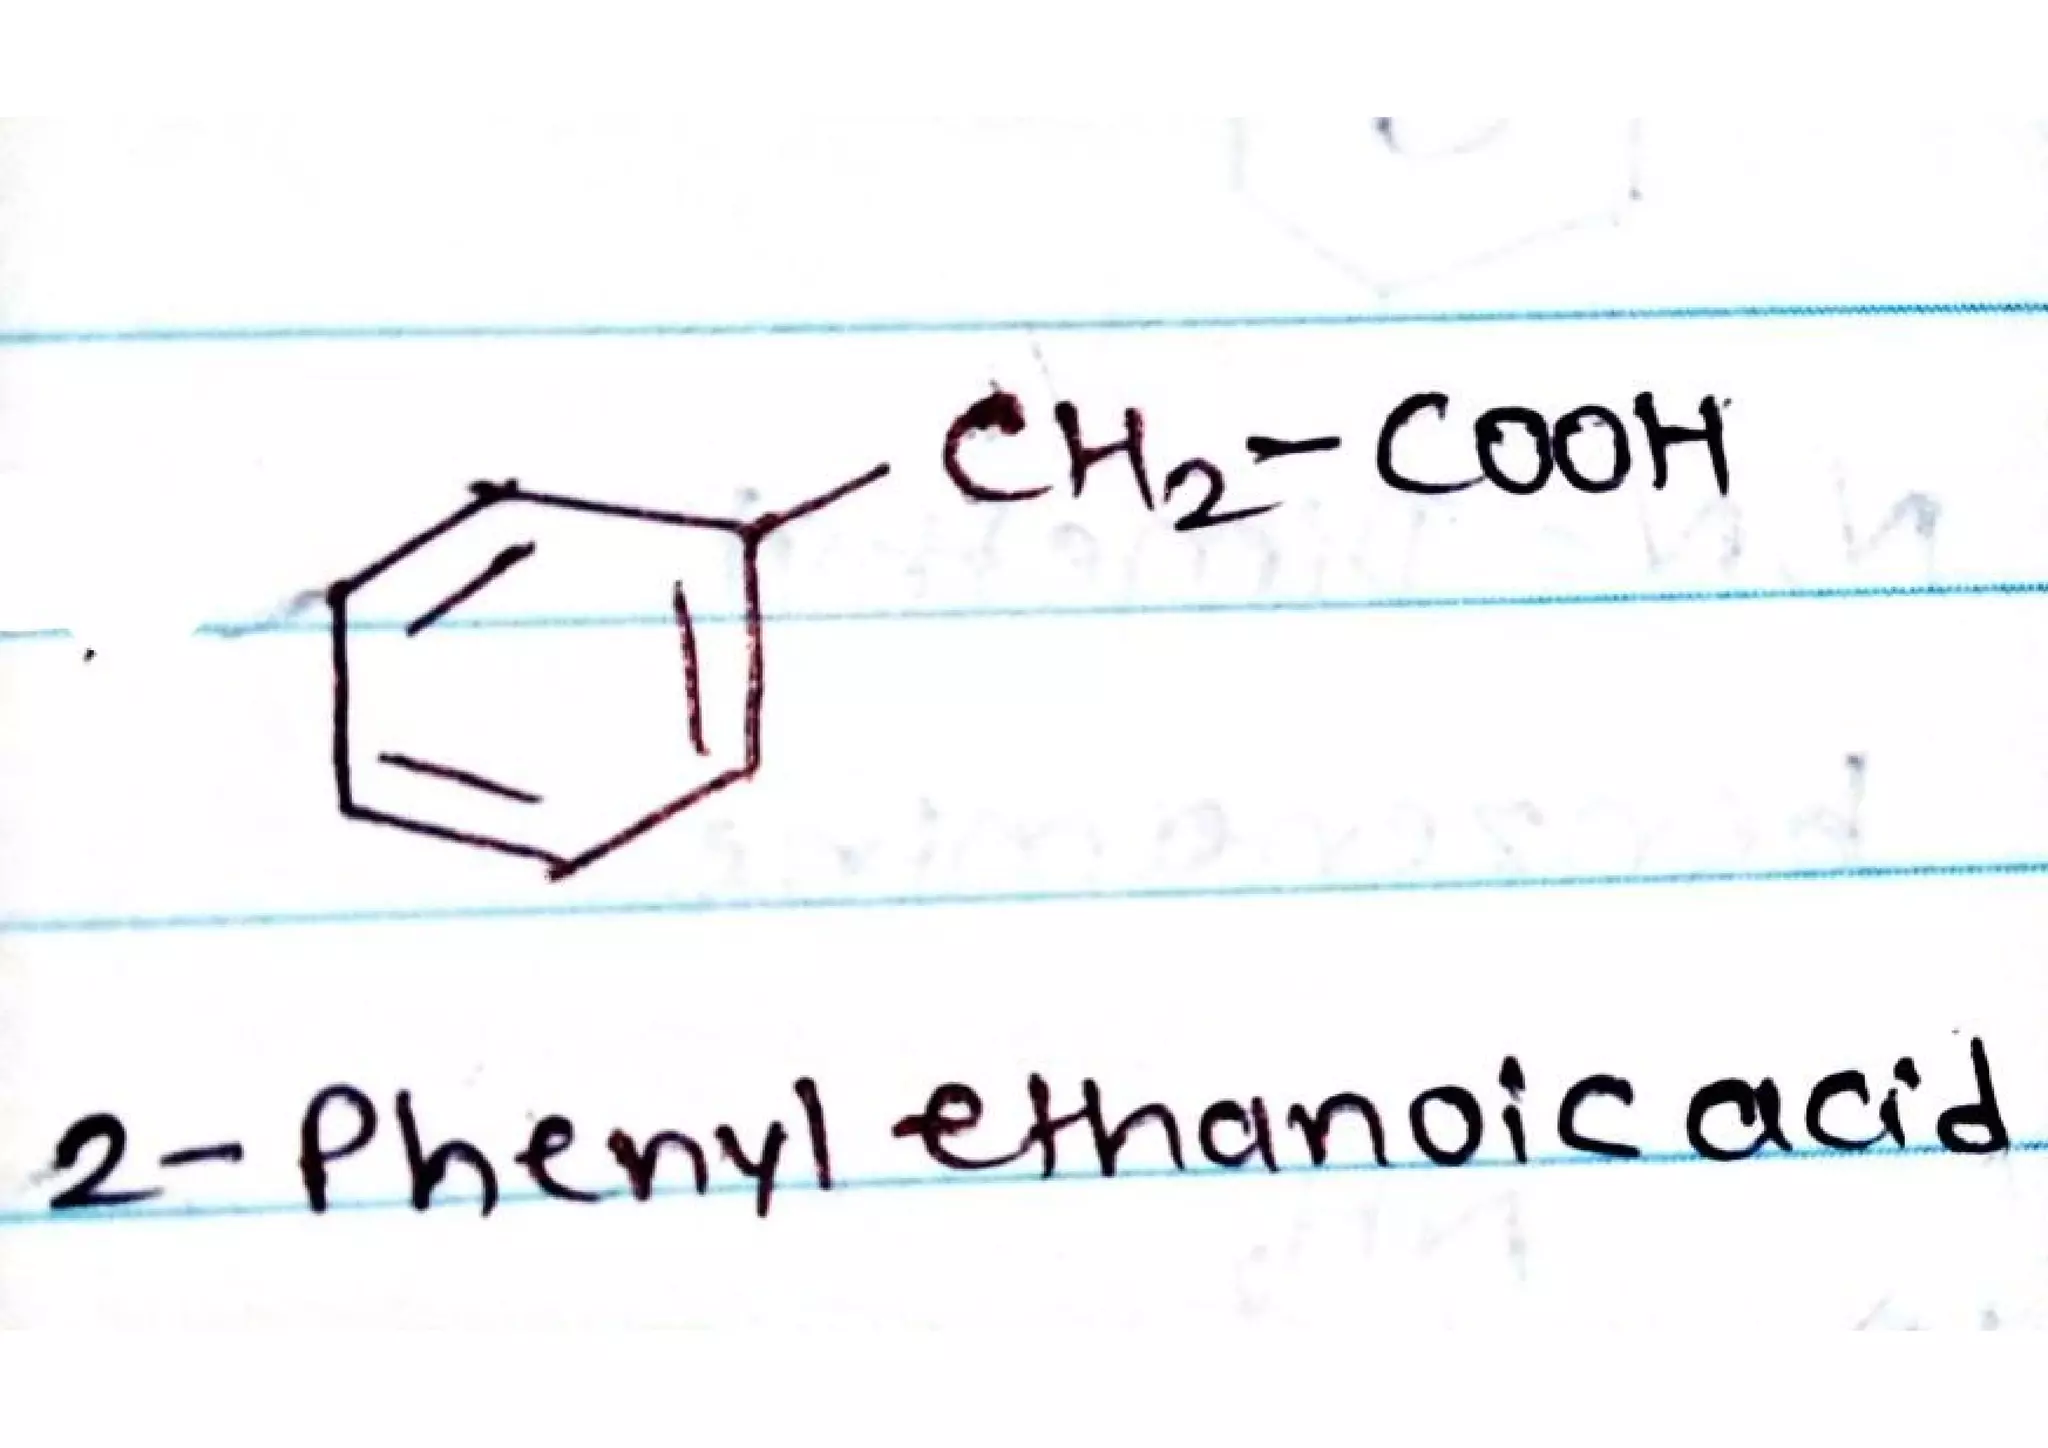 CH₂-COOH
2-Phenyl ethanoic acid